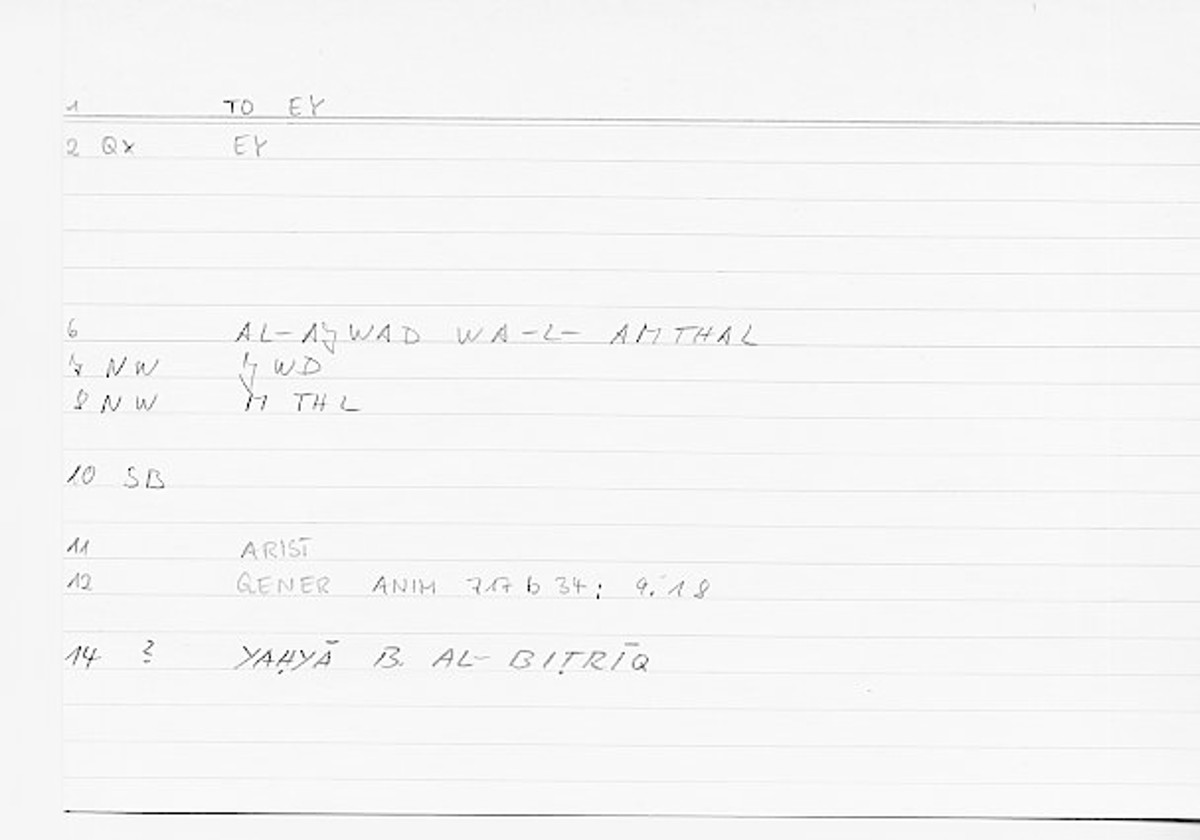 1 TO EY
2 Qx EY
6 AL-AJWAD WA-L- AMTHAL
7 NW JWD
8 NW M THL
10 SB
11 ARIST
12 GENER ANIM 717 b 34; 9.18
14 ? YAḤYĀ B. AL-BIṬRĪQ